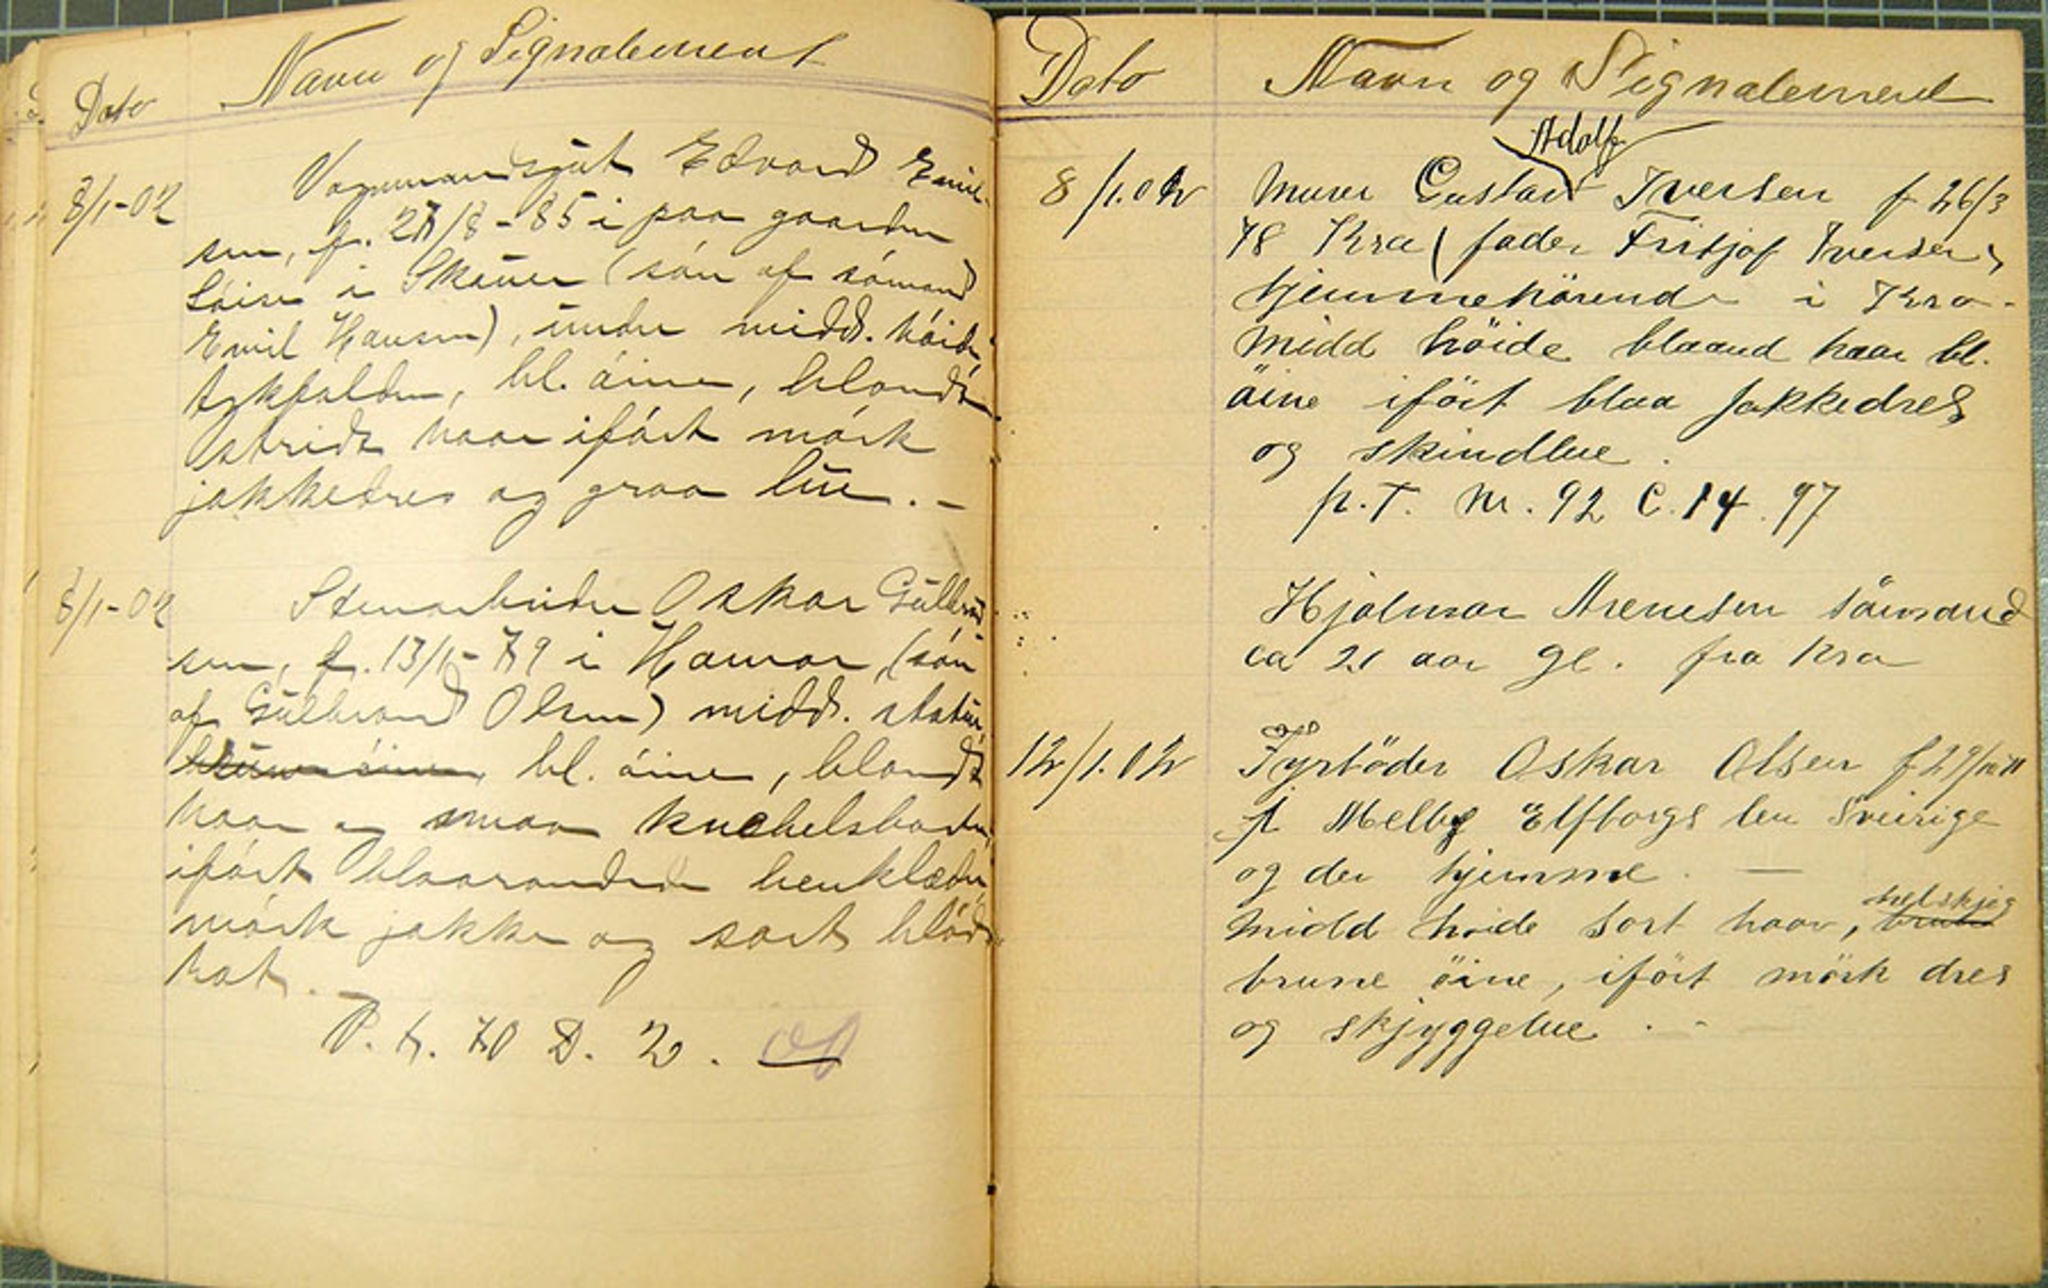 Dato Navn og Signalement
8/1-02 Vognmandsgut Edvard Emil-
sen, f. 27/8-85 i paa gaarden
i Skauer (sön af sömand
Emil Hansen), under midd. höide,
tykfalden, bl. öine, blondt
stridt haar iført mörk
jakkedres og graa lue. -
8/1-02 Stenarbeider Oskar Gulbrand
sen, f. 13/1-79 i Hamar, (sön
af Gulbrand Olsen) midd. statur,
bl. öine, blondt
haar og smaa knebelsbarter,
iført blaarandede benklæder,
mörk jakke og sort blöd
hat. -
P. t. 70 D. 2.
Dato Navn og Signalement
Adolf
8/1.02 Murer Gustav Iversen f 26/3
78 Kra (fader Fritjof Iversen)
hjemmehörende i Kra.
Midd höide blaand haar bl.
öine ifört blaa Jakkedres
og skindlue.
p.T. Nr. 92 C. 14. 97
Hjalmar Arenesen sömand
ca 21 aar gl. fra Kra
12/1.02 Fyrböder Oskar Olsen
Melby Elfborgs len Sveirige
og der hjemme. —
helskjeg
midd höide sort haar, brune
brune öine, ifört mörk dres
og skjyggelue. -